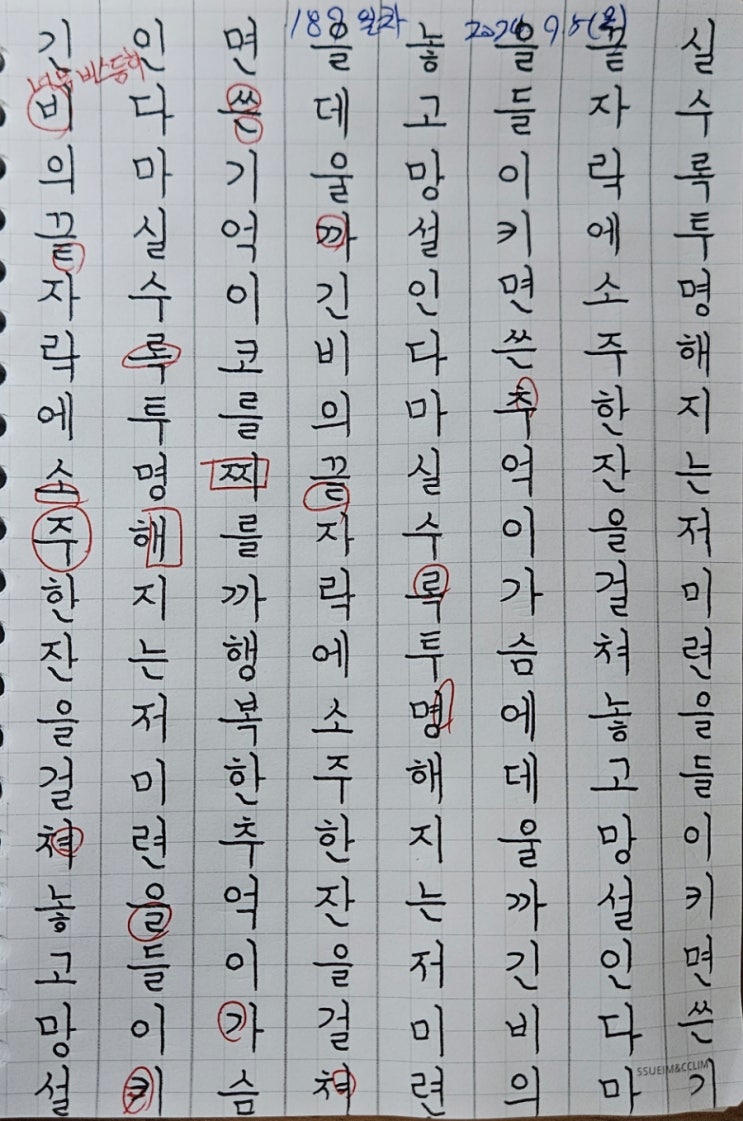 188일차
너무 비스듬히
긴비의끝자락에소주한잔을걸쳐놓고망설
인다마실수록투명해지는저미련을들이키
면쓴기억이코를찌를까행복한추억이가슴
을데울까긴비의끝자락에소주한잔을걸쳐
놓고망설인다마실수록투명해지는저미련
을들이키면쓴추억이가슴에데울까긴비의
끝자락에소주한잔을걸쳐놓고망설인다마
실수록투명해지는저미련을들이키면쓴기
SSUEIM&CCLIM